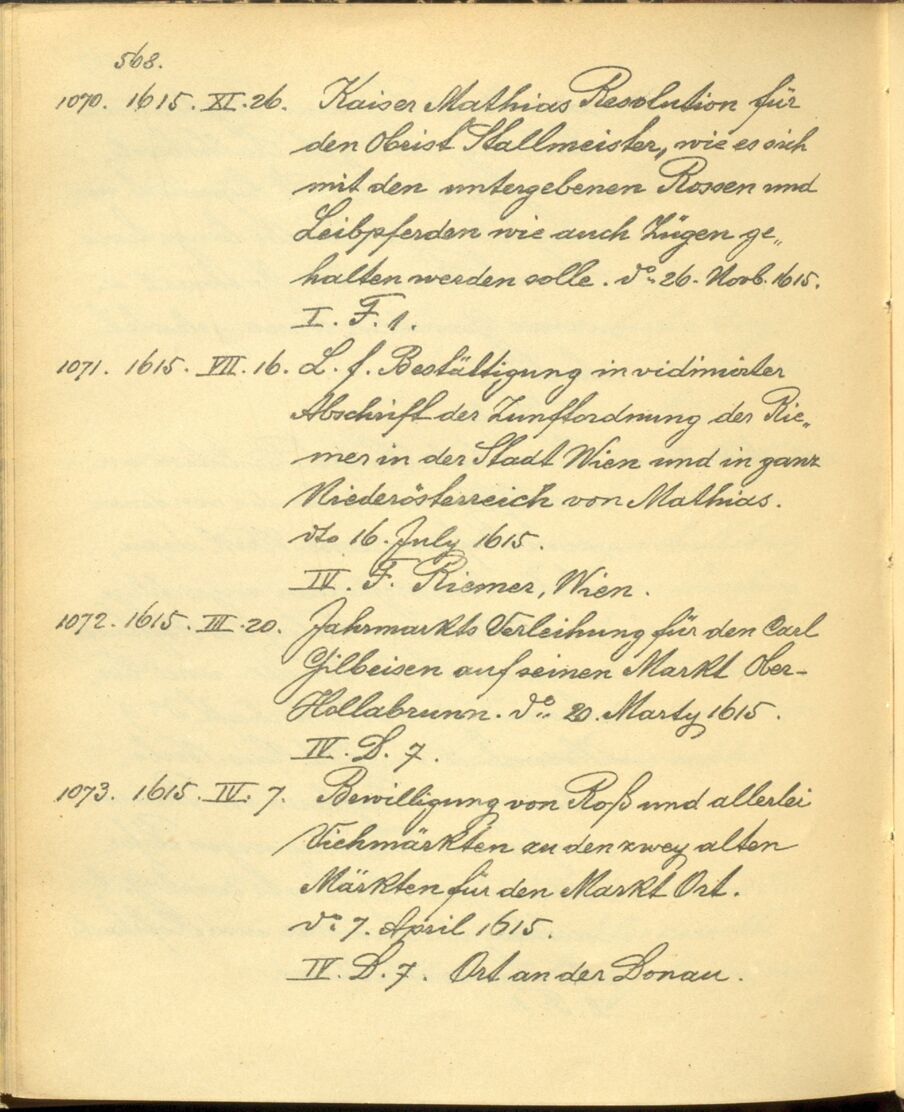 568.
1070. 1615. XI. 26. Kaiser Mathias Resolution für
den Obrist Stallmeister, wie es sich
mit den untergebenen Rossen und
Leibpferden wie auch Zügen ge„
halten werden solle. do 26. Novb. 1615.
I. F. 1.
1071. 1615. VII. 16. L. f. Bestättigung in vidimirter
Abschrift der Zunftordnung der Rie„
mer in der Stadt Wien und in ganz
Niederösterreich von Mathias.
dto 16. July 1615.
IV. F. Riemer, Wien.
1072. 1615. III. 20. Jahrmarkts Verleihung für den Carl
Gilbeisen auf seinen Markt Ober-
Hollabrunn. do 20. Marty 1615.
IV. D. 7.
1073. 1615. IV. 7. Bewilligung von Roß und allerlei
Viehmärkten zu den zwey alten
Märkten für den Markt Ort.
do 7. April 1615.
IV. D. 7. Ort an der Donau.